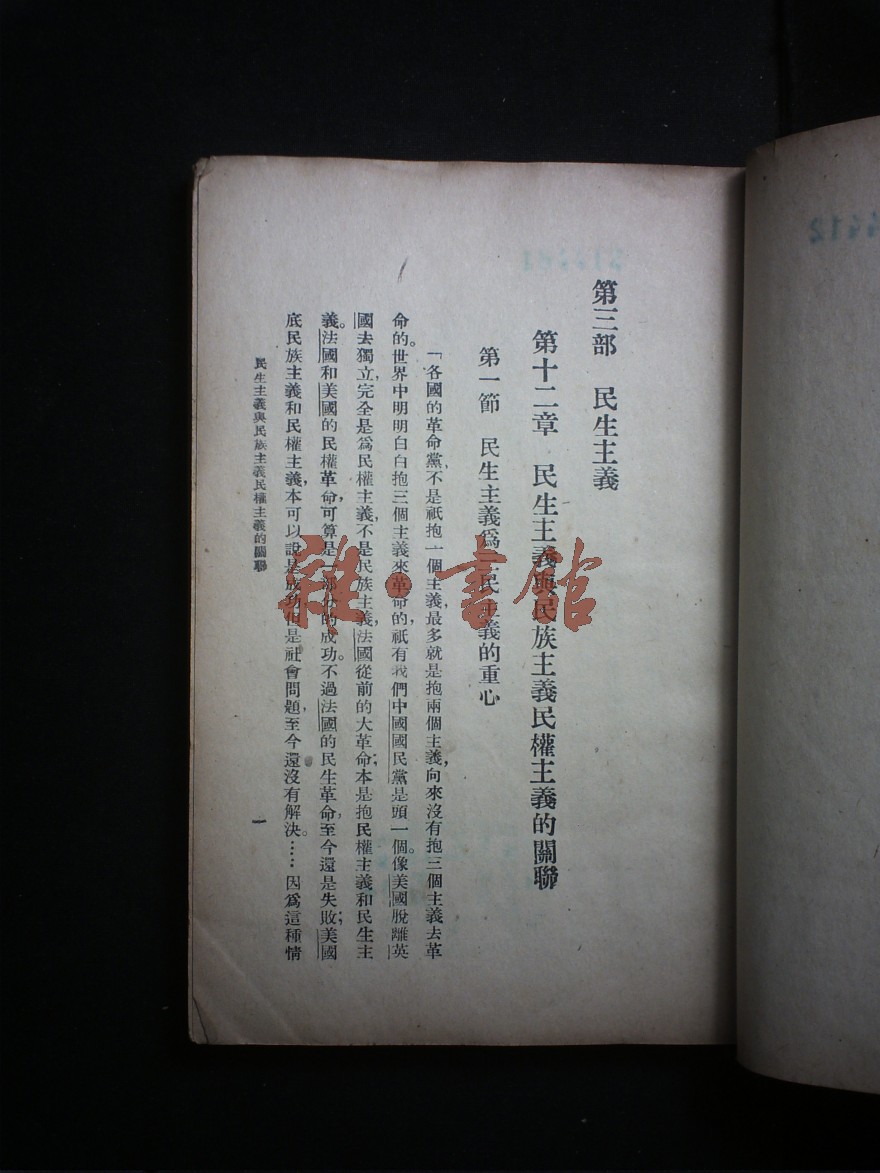 第三部　民生主義
第十二章　民生主義與民族主義民權主義的關聯
第一節　民生主義爲三民主義的重心
「各國的革命黨，不是祇抱一個主義，最多就是抱兩個主義，向來沒有抱三個主義去革
命的。世界中明明白白抱三個主義來革命的，祇有我們中國國民黨是頭一個。像美國脫離英
國去獨立，完全是爲民權主義，不是民族主義，法國從前的大革命，本是抱民權主義和民生主
義。法國和美國的民權革命，可算是一部份的成功。不過法國的民生革命，至今還是失敗；美國
底民族主義和民權主義，本可以說是成功，但是社會問題，至今還沒有解決。……因爲這種情
民生主義與民族主義民權主義的關聯
一
雜·書館
4412